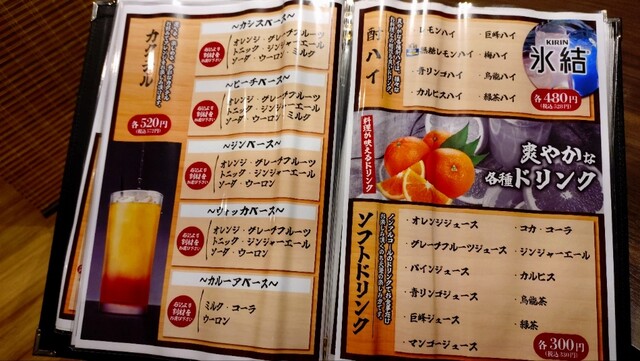 カクテル
各520円
(税込572円)
～カシスベース～
お好みより
割材を
お選び下さい
オレンジ・グレーチフルーツ
トニック・ジンジャーエール
ソーダ・ウーロン・ミルク
～ピーチベース～
お好みより
割材を
お選び下さい
オレンジ・グレーチフルーツ
トニック・ジンジャーエール
ソーダ・ウーロン・ミルク
～ジンベース～
お好みより
割材を
お選び下さい
オレンジ・グレーチフルーツ
トニック・ジンジャーエール
ソーダ・ウーロン
～ウォッカベース～
お好みより
割材を
お選び下さい
オレンジ・グレーチフルーツ
トニック・ジンジャーエール
ソーダ・ウーロン
～カルーアベース～
お好みより
割材を
お選び下さい
ミルク・コーラ
ウーロン
酎ハイ
・レモンハイ
・氷結レモンハイ
・青リンゴハイ
・カルピスハイ
・巨峰ハイ
・梅ハイ
・烏龍ハイ
・緑茶ハイ
KIRIN
氷結
各480円
(税込528円)
料理が映えるドリンク
爽やかな
各種ドリンク
ソフトドリンク
・オレンジジュース
・グレーチフルーツジュース
・パインジュース
・青リンゴジュース
・巨峰ジュース
・マンゴージュース
・コカ・コーラ
・ジンジャーエール
・カルピス
・烏龍茶
・緑茶
各300円
(税込330円)